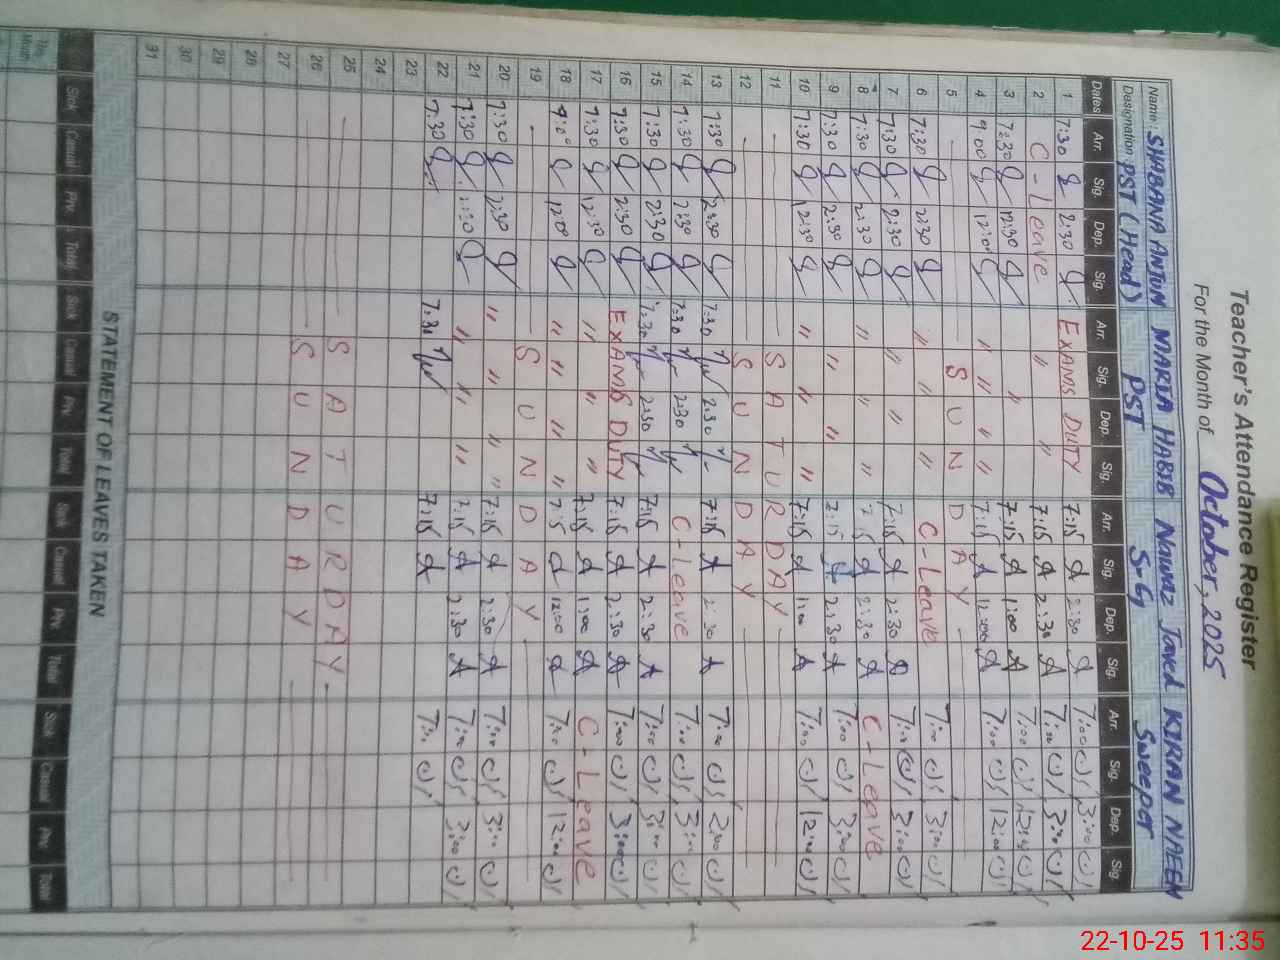 Teacher's Attendance Register
For the Month of October, 2025
Name: SHABANA ANJUM MARIA HABIB Nawaz Javed KIRAN NAEEM
Designation PST (Head) PST S-G Sweeper
Dates Arr. Sig. Dep. Sig. Arr. Sig. Dep. Sig. Arr. Sig. Dep. Sig. Arr. Sig. Dep. Sig.
1 7:30 2:30 EXAMS DUTY 7:15 2:30 7:00 3:00
2 C-Leave " " 7:15 2:30 7:00 3:00
3 7:30 12:30 " 7:15 1:00 7:00 12:00
4 9:00 12:00 " " " " 7:15 12:00 7:00 12:00
5 SUNDAY
6 7:30 2:30 " " " C-Leave 7:00 3:00
7 7:30 2:30 " " 7:15 2:30 7:00 3:00
8 7:30 2:30 " " 7:15 2:30 C-Leave
9 7:30 2:30 " " " 7:15 2:30 7:00 3:00
10 7:30 12:30 " " " 7:15 1:00 7:00 12:00
11 SATURDAY
12 SUNDAY
13 7:30 2:30 7:30 2:30 7:15 2:30 7:00 2:00
14 7:30 2:30 7:30 2:30 C-Leave 7:00 3:00
15 7:30 2:30 7:30 2:30 7:15 2:30 7:00 3:00
16 7:30 2:30 EXAMS DUTY 7:15 2:30 7:00 3:00
17 7:30 12:30 " " " 7:15 1:00 C-Leave
18 9:00 12:00 " " " " 7:15 12:00 7:00 12:00
19 SUNDAY
20 7:30 2:30 " " " " 7:15 2:30 7:00 3:00
21 7:30 2:30 " " " 7:15 2:30 7:00 3:00
22 7:30 7:30 7:15 7:00
23
24
25 SATURDAY
26 SUNDAY
27
28
29
30
31
STATEMENT OF LEAVES TAKEN
This Month Sick Casual Prv. Total Sick Casual Prv. Total Sick Casual Prv. Total Sick Casual Prv. Total
22-10-25 11:35